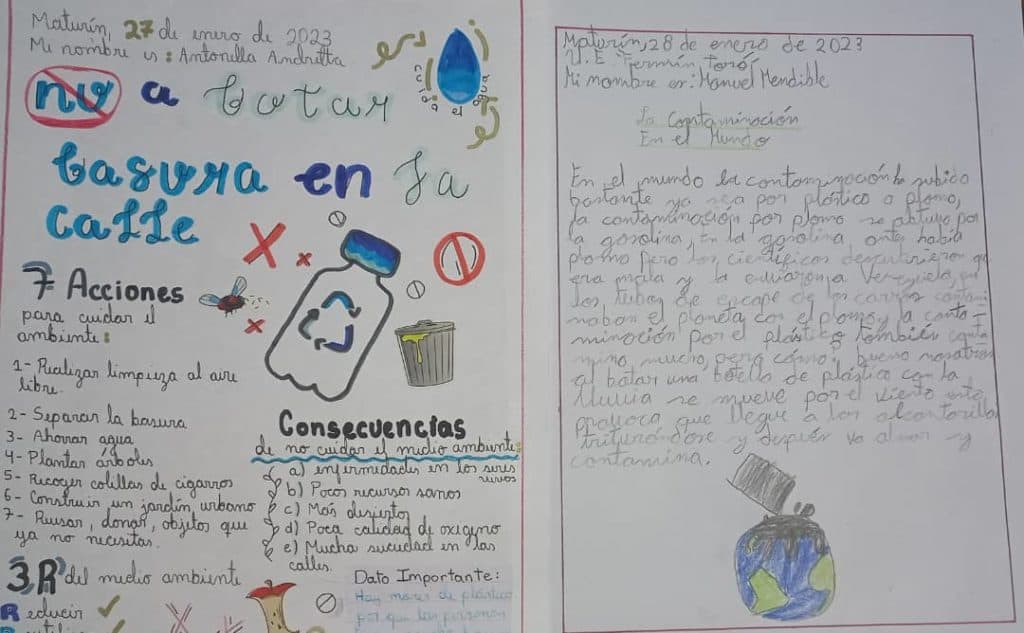 Maturín, 27 de enero de 2023
Mi nombre es: Antonella Andretta
no a botar
basura en la
calle
cuida el agua
7 Acciones
para cuidar el
ambiente:
1- Realizar limpieza al aire
libre.
2- Separar la basura
3- Ahorrar agua
4- Plantar árboles
5- Recoger colillas de cigarros
6- Construir un jardín urbano
7- Reusar, donar, objetos que
ya no necesitas.
3R del medio ambiente
Reducir
Consecuencias
de no cuidar el medio ambiente:
a) enfermedades en los seres
vivos
b) Pocos recursos sanos
c) Mas desierto
d) Poca calidad de oxigeno
e) Mucha suciedad en las
calles.
Dato Importante:
Hay mares de plástico
por que las personas
Maturín, 28 de enero de 2023
U.E Fermín Toro
Mi nombre es: Manuel Mendible
La Contaminación
En el Mundo
En el mundo la contaminación a subido
bastante ya sea por plástico o plomo,
la contaminación por plomo se obtuvo por
la gasolina, En la gasolina antes había
plomo pero los científicos descubrieron
era mala y la Venezuela,
los tubos de escape de los carros
el planeta con el plomo y la
minación por el plástico también
mucho, pero cómo, bueno nosotros
al botar una botella de plástico con la
lluvia se mueve por el viento esto
que llegue a las
y después va al mar y
contamina.